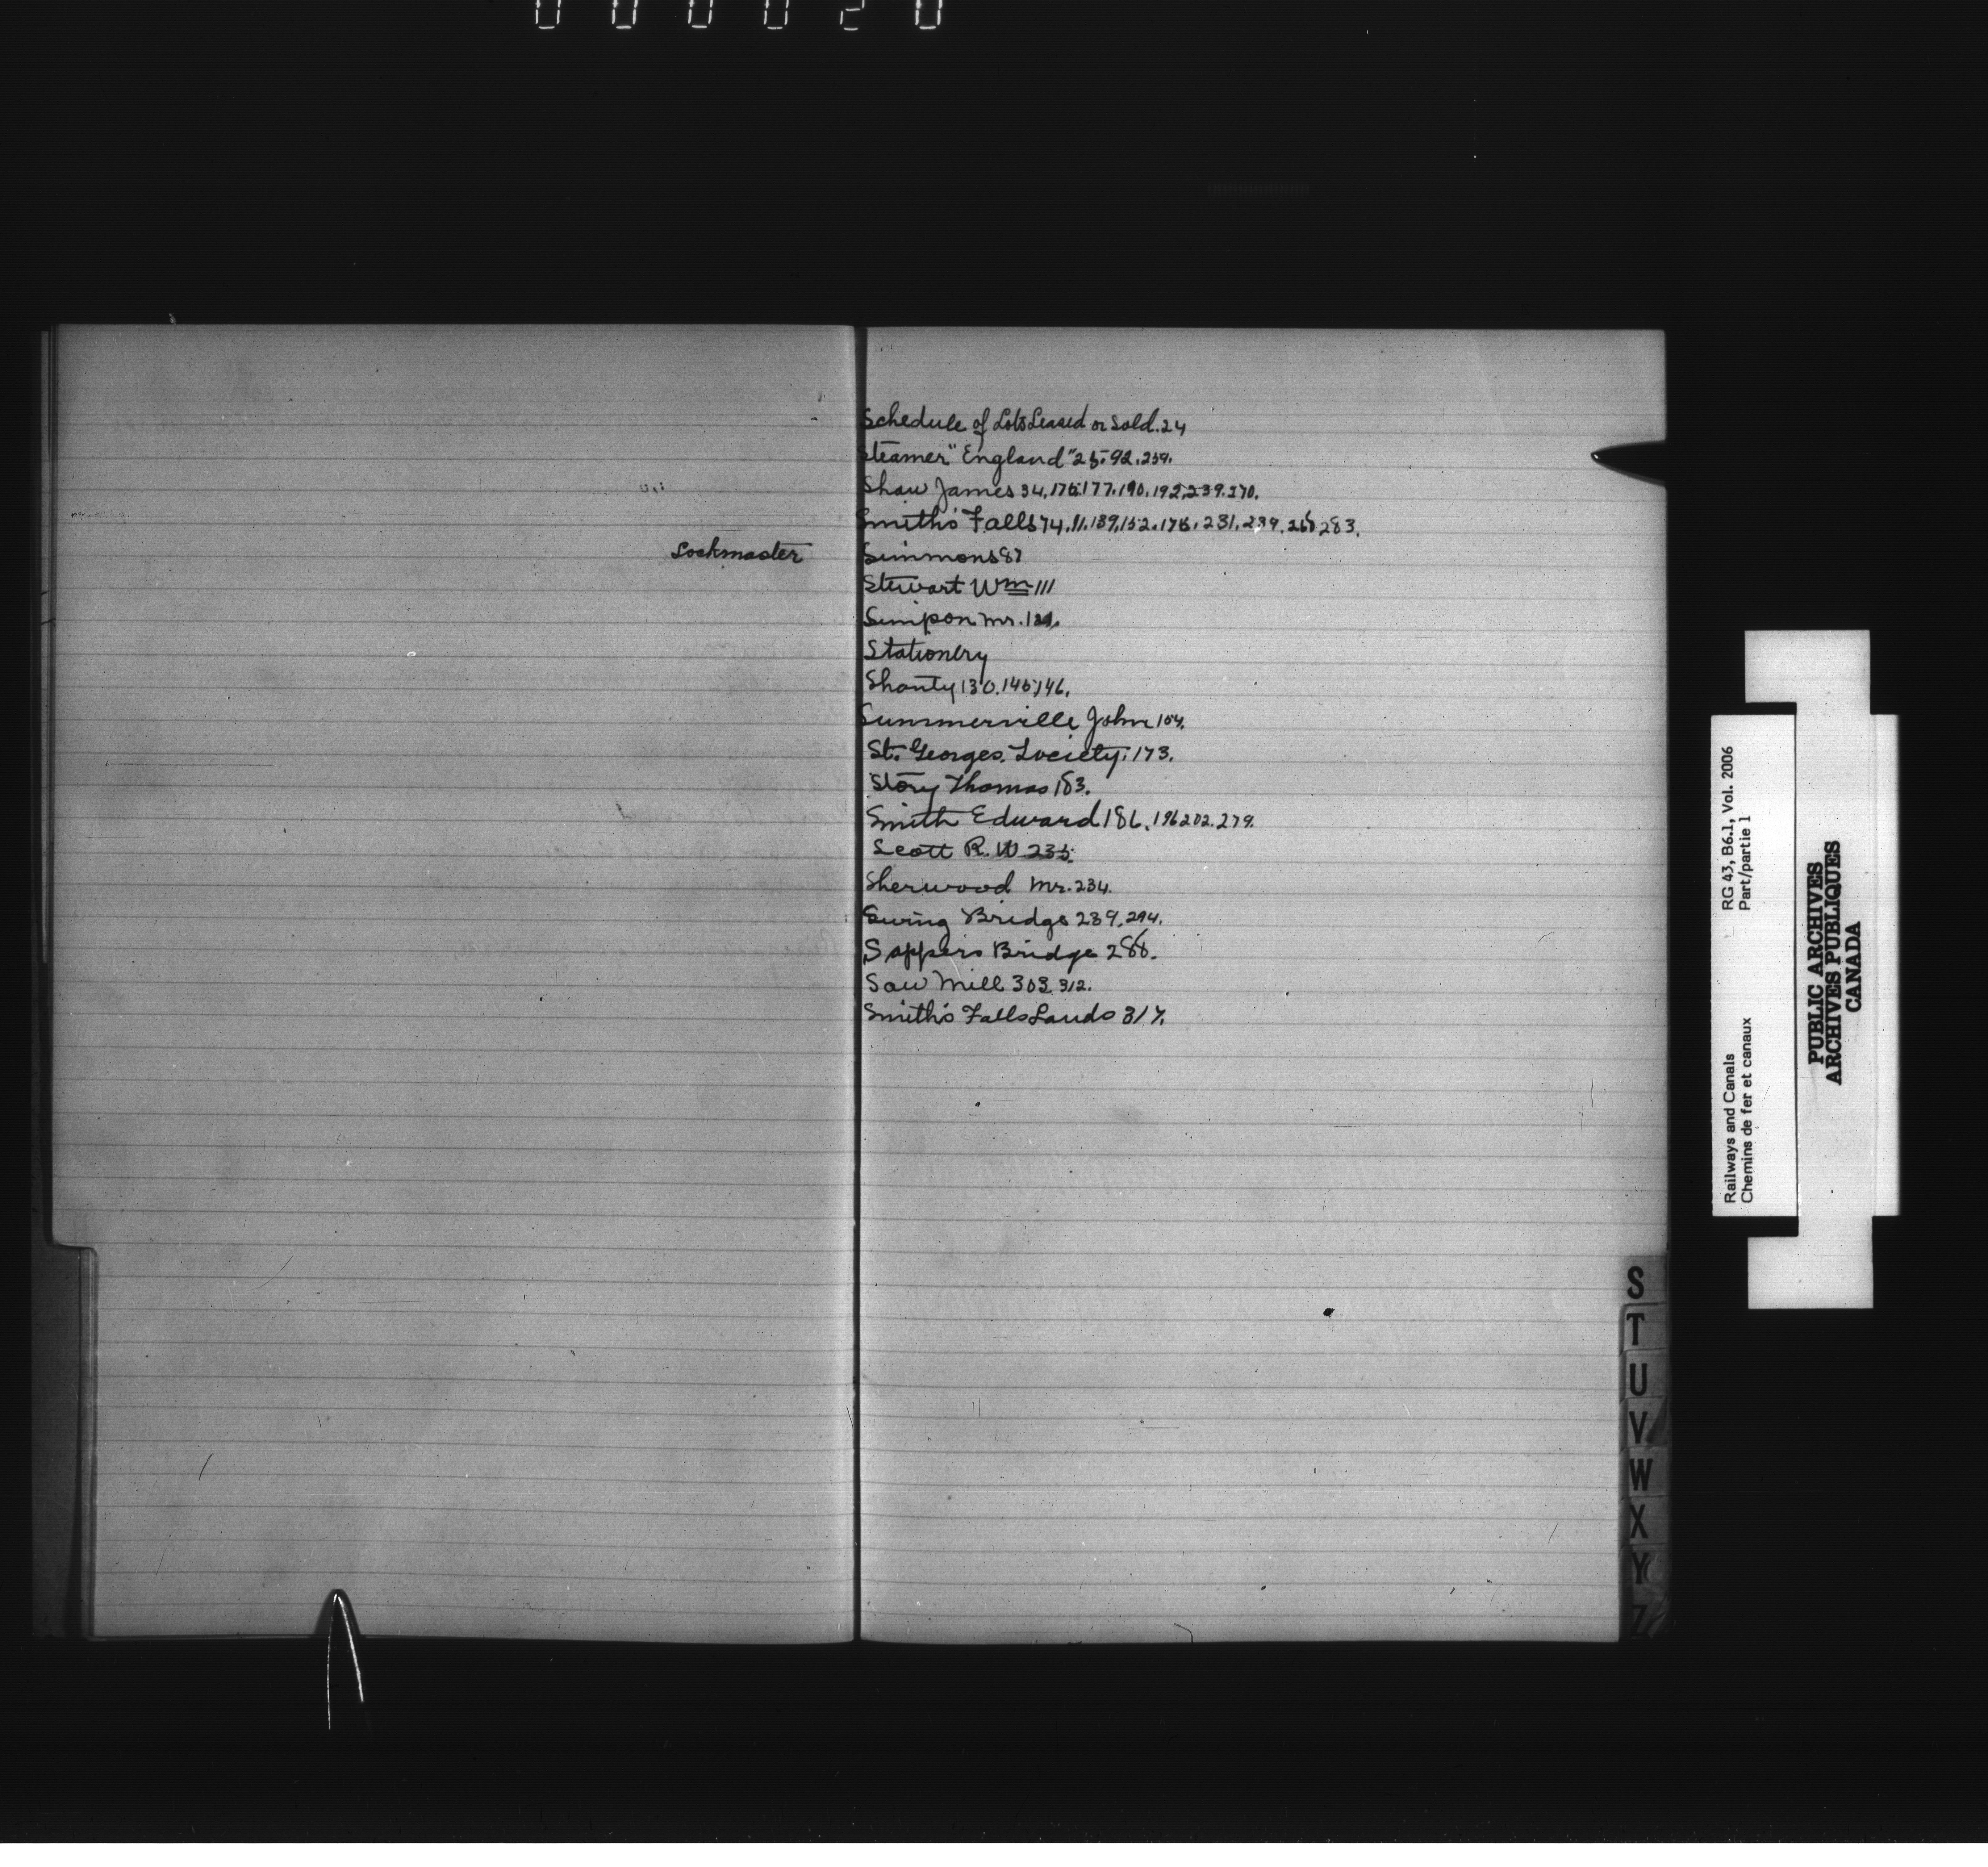 000020
Schedule of Lots Leased or Sold. 24
Steamer "England" 25. 92. 259.
Shaw James 34, 176. 177. 190. 192, 239. 270.
Smith's Falls 74, 11. 139, 152. 175. 231. 239. 283.
Lockmaster Simmons 87
Stewart Wm 111
Simpson Mr.
Stationery
Shanty 130. 145, 146.
Summerville John 154.
St. Georges Society. 173.
Story Thomas 183.
Smith Edward 186. 196 202. 279.
Scott R. W 235.
Sherwood Mr. 234.
Swing Bridge 289, 294.
Sappers Bridge 286.
Saw Mill 303 312.
Smith's Falls Lands 317.
S
T
U
V
W
X
Y
Z
Railways and Canals RG 43, B6.1, Vol. 2006
Chemins de fer et canaux Part/partie 1
PUBLIC ARCHIVES
ARCHIVES PUBLIQUES
CANADA